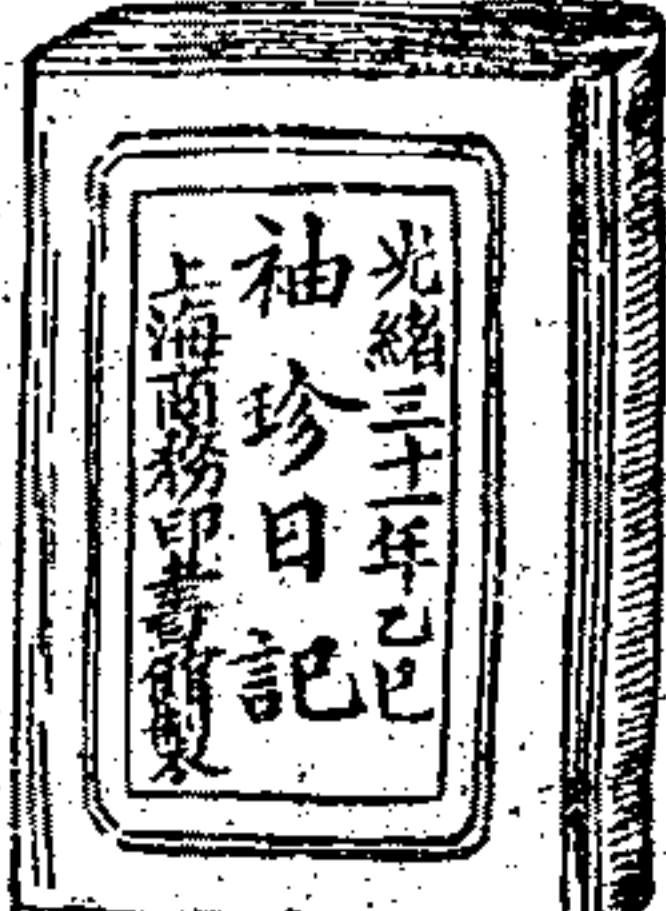 光緒三十一年乙巳
袖珍日記
上海商務印書館製